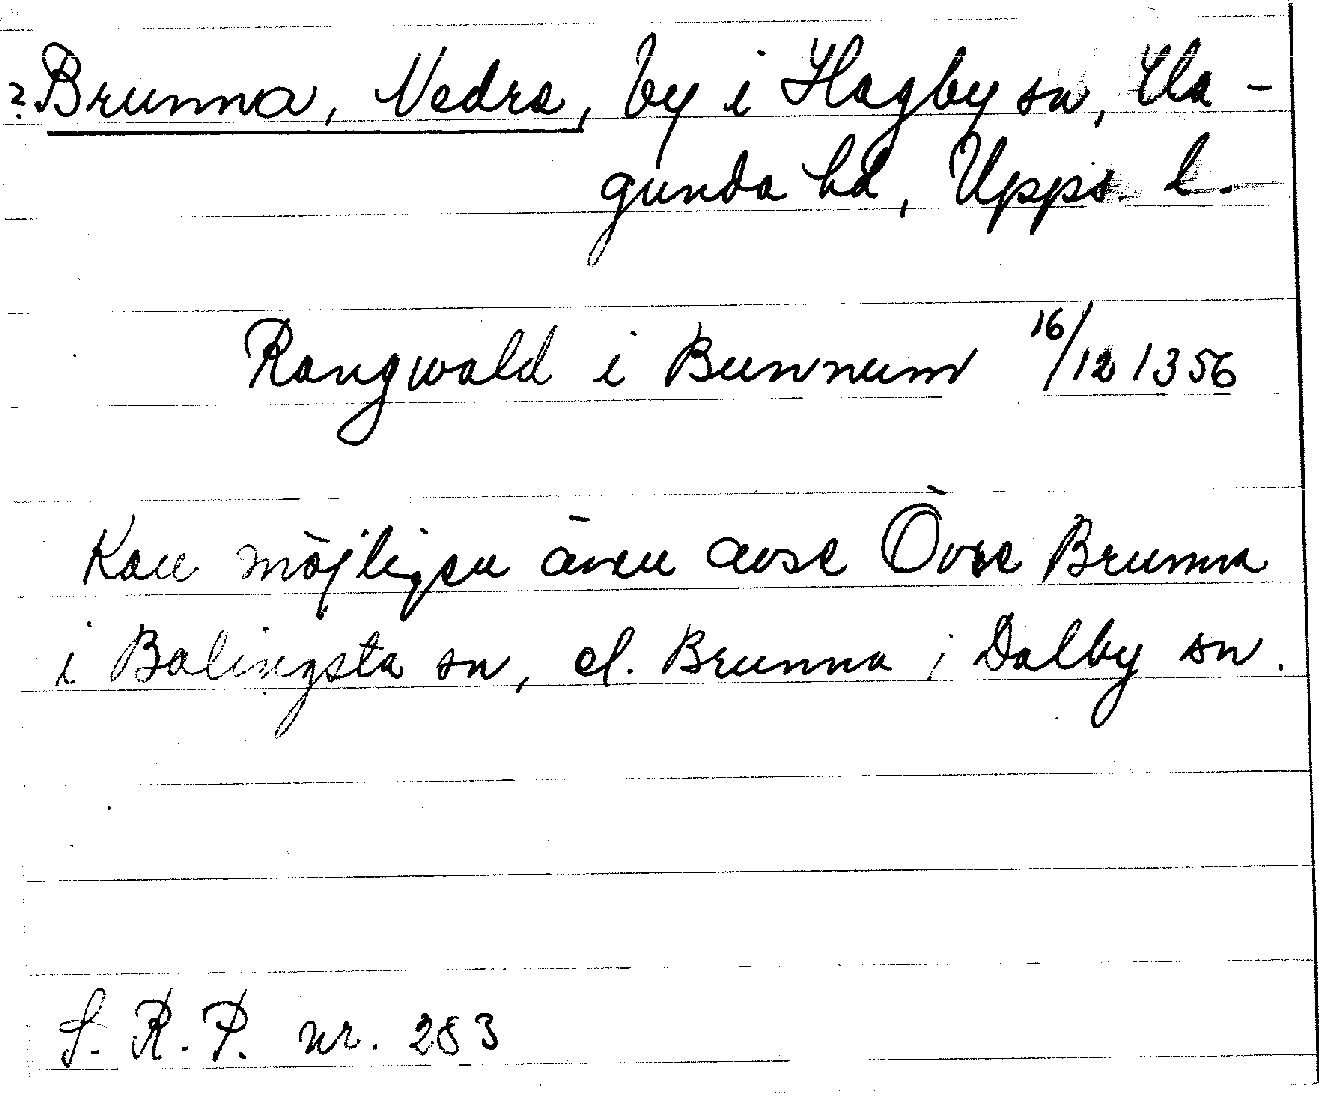 ? Brunna, Nedra, by i Hagby sn, Ha-
gunda hd, Upps. l.
Rangwald i Bunnum 16/12 1356
Kan möjligen även avse Övre Brunna
i Balingsta sn, el. Brunna i Dalby sn.
S. R. P. nr. 283